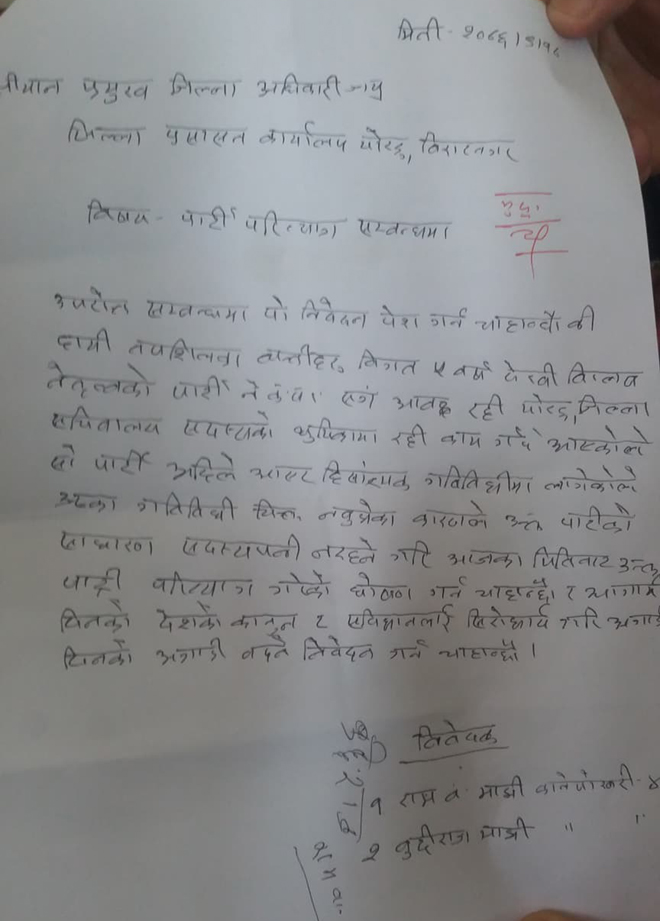 मिती - २०७६।
प्रमुख जिल्ला अधिकारी ज्यु
जिल्ला प्रसासन कार्यालय मोरङ, विराटनगर
विषय - पार्टी परित्याग सम्वन्धमा
सम्वन्धमा यो निवेदन पेश गर्न चाहान्छौ की
हामी तपशिलका विगत ५ वर्ष देखी विप्लव
नेतृत्वको पार्टी ने.क.पा. संग आवद्ध रही मोरङ जिल्ला
सचिवालय सदस्यको भुमिकामा रही काम गर्दै आएकोले
सो पार्टी अहिले आएर हिसांत्मक गतिविधीमा लागेकोले
गतिविधी चित्त नवुझेका कारणले उक्त पार्टीको
साधारण सदस्यपनी नरहने गरि आजका मितिवाट उक्त
पार्टी परित्याग गरेको घोषणा गर्न चाहान्छौ र
दिनको देशको कानुन र संविधानलाई सिरोधार्य गरि
दिनको अगाडी वढ्ने निवेदन गर्न चाहान्छौ ।
निवेदक
१ राम व. माझी कानेपोखरी -
२ वुद्दीराज माझी " "